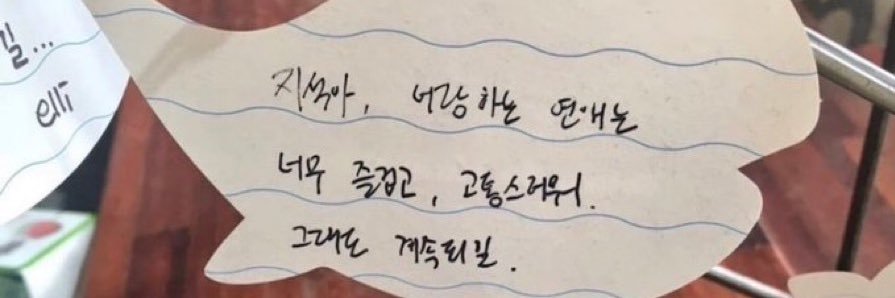 길...
elli
지석아, 너랑하는 연애는
너무 즐겁고, 고통스러워.
그래도 계속되길.